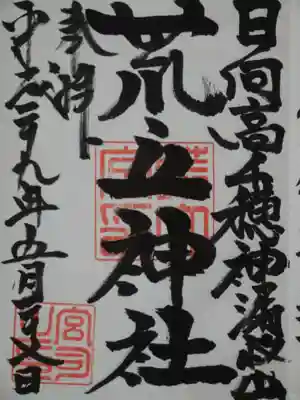 日向高千穂神漏岐山
荒立神社
奉拝
平成廿九年五月日
宮司